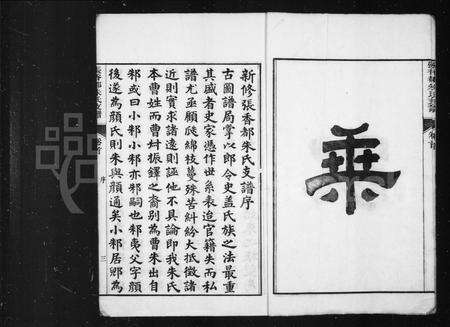 乘
新修張香都朱氏支譜序
古圖譜局掌以郎令史蓋氏族之法最重
其盛者史家憑作世系表迨官籍失而私
譜尤亟顧蓰綿枝蔓殊苦糾紛大抵徵諸
近則實求諸遠則誣他不具論即我朱氏
本曹姓而曹叔振鐸之裔別為曹朱出自
邾或曰小邾小邾亦邾嗣也邾夷父字顏
後遂為顏氏則朱與顏通矣小邾居郳為
卷首
序
三